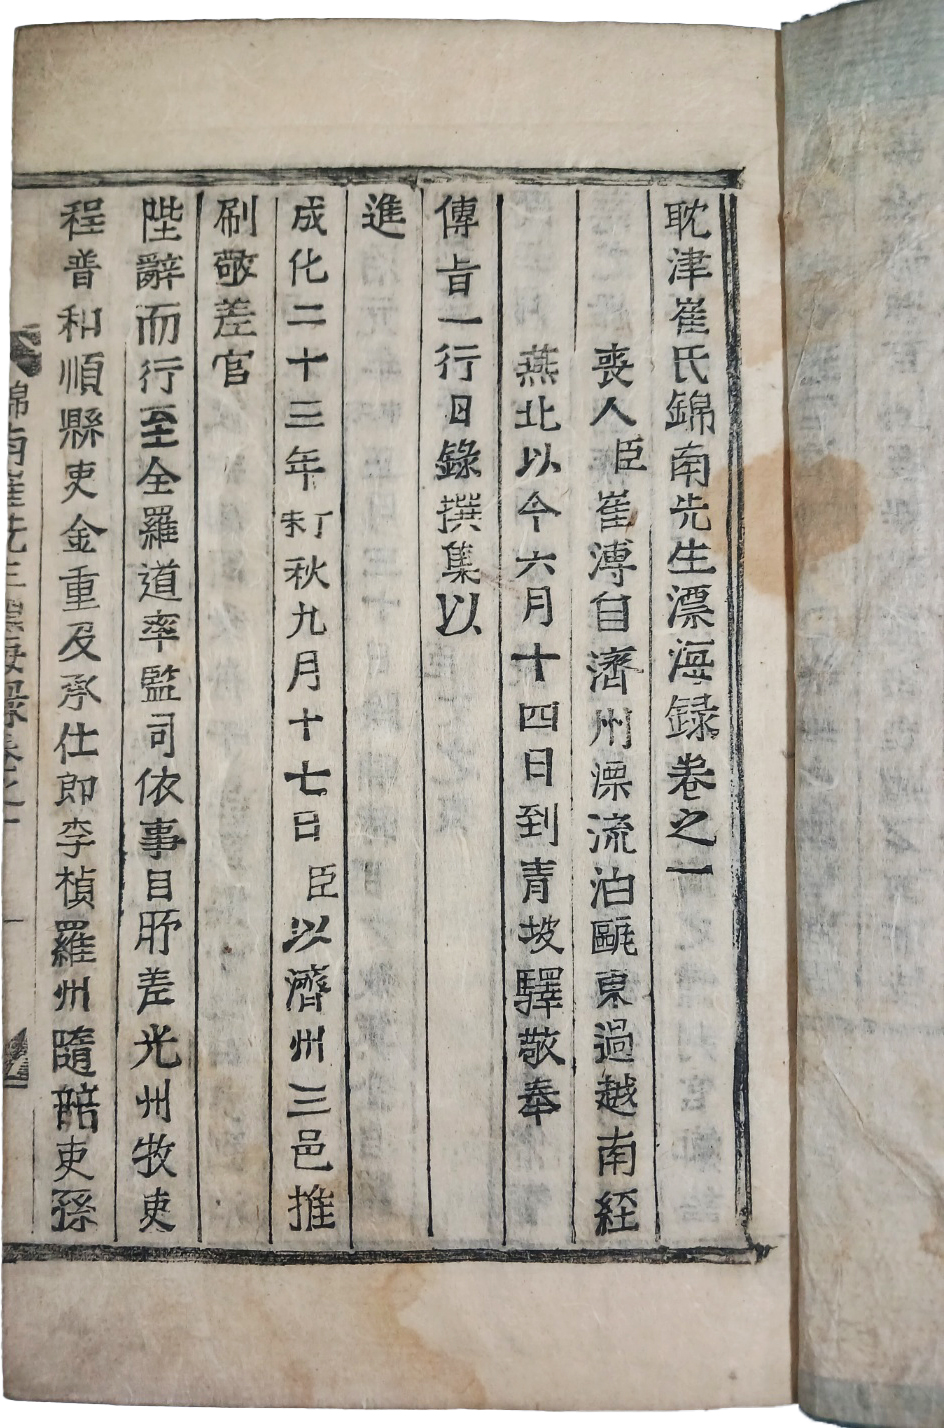 耽津崔氏錦南先生漂海録卷之一
喪人臣崔溥自濟州漂流泊甌東過越南經
燕北以今六月十四日到青坡驛敬奉
傳旨一行日錄撰集以
進
成化二十三年丁未秋九月十七日臣以濟州三邑推
刷敬差官
陛辭而行至全羅道率監司依事目所差光州牧吏
程普和順縣吏金重及承仕郎李楨羅州隨陪吏孫
錦南崔先生漂海録卷之一